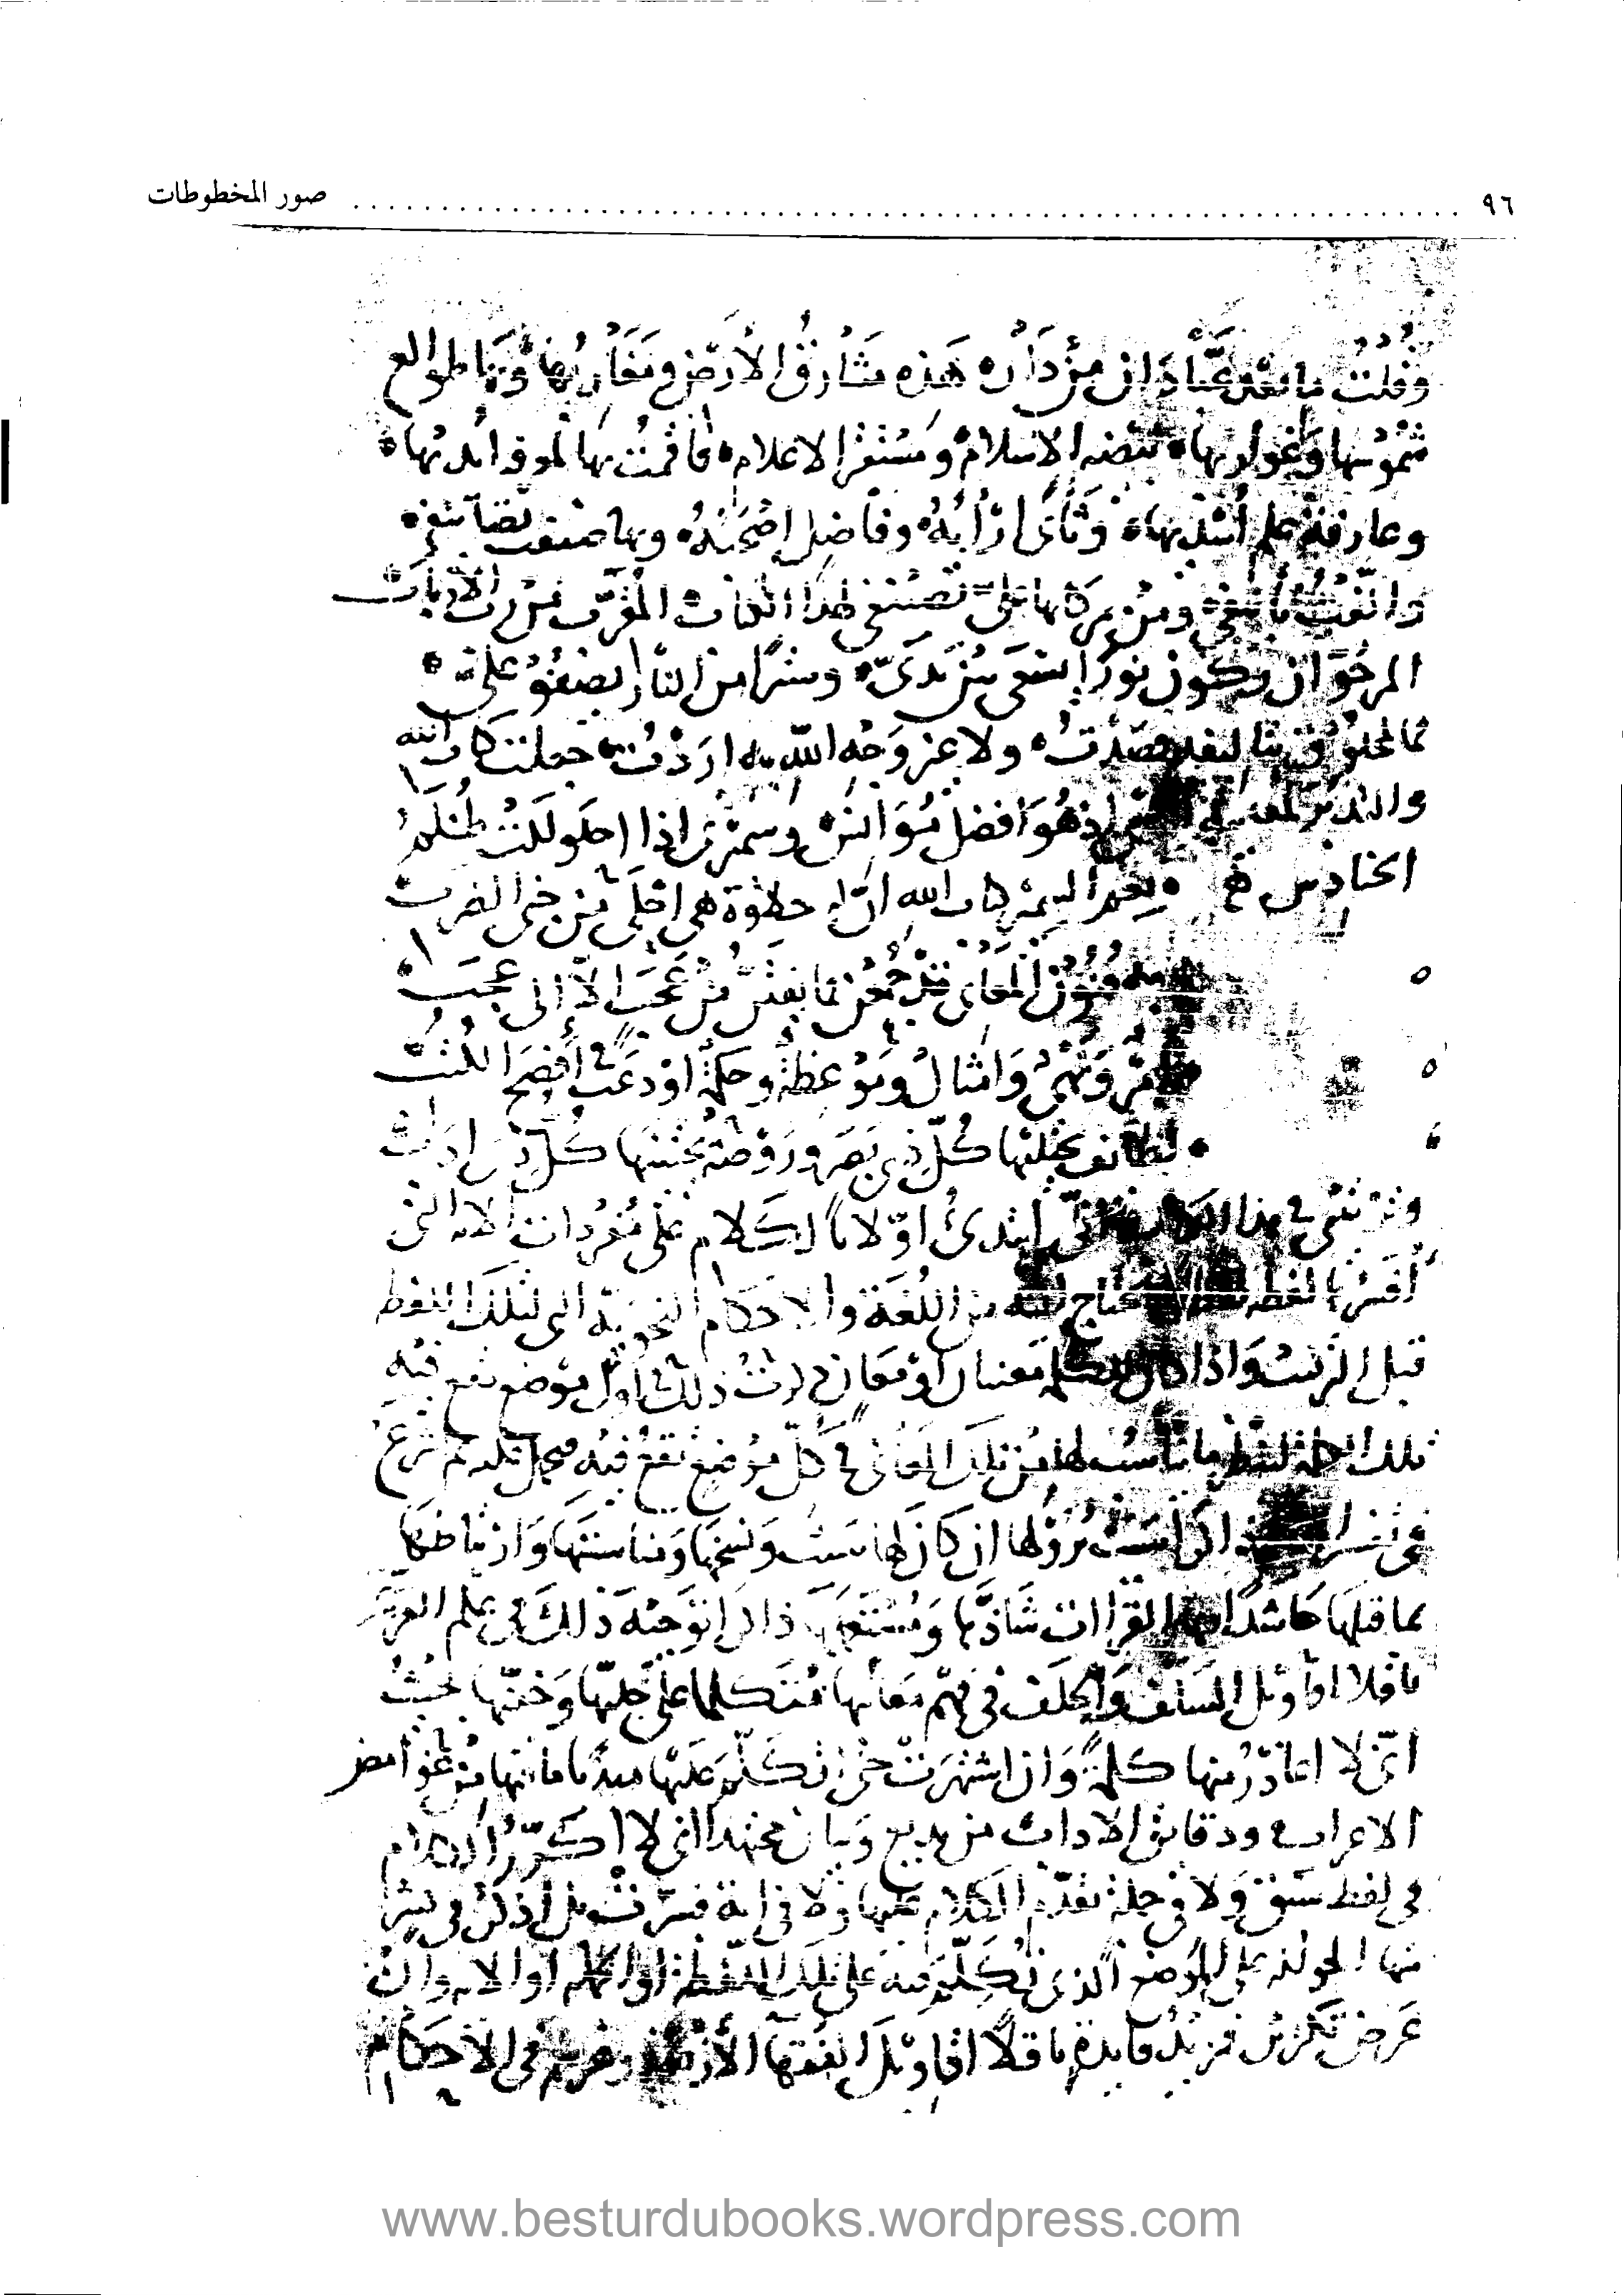 ٩٦ صور المخطوطات
وقلت ما بعد عبادان من داره هذه مشارق الارض ومغاربها وبها طوالع
شموسها وغواربها بيضة الاسلام ومستقر الاعلام فاقمت بها لمعرفة ابديها
وعارفة علم اسديها وثأى ارأبه وفاضل اصحبه وبها صنفت تصانيفي
والفت تآليفي ومن بركاتها علي تصنيفي لهذا الكتاب المقرب من رب الارباب
المرجو ان يكون نورا يسعى بين يدي وسترا من النار يضفو علي
فما لمخلوق بتأليفه قصدت ولا غير وجه الله به اردت جعلت كتاب الله
والتدبر لمعانيه اذ هو افضل مؤانس وسميري اذا احلولكت لظلم
الحنادس نعم السمير كتاب الله ان له حلاوة هي احلى من جنى الضرب
به فنون المعاني قد جمعن فما يفتر من عجب الا الى عجب
امر ونهي وامثال وموعظة وحكمة اودعت في افصح الكتب
لطائف يجتليها كل ذي بصر وروضة يجتنيها كل ذي ادب
وترتيبي في هذا الكتاب اني ابتدئ اولا بالكلام على مفردات الاية التي
افسرها لفظة لفظة فيما يحتاج اليه من اللغة والاحكام النحوية التي لتلك اللفظة
قبل التركيب واذا كان للكلمة معنيان او معان ذكرت ذلك في اول موضع تقع فيه
تلك الكلمة لينظر ما يناسب لها من تلك المعاني في كل موضع تقع فيه فيحمل عليه ثم اشرع
في تفسير الاية ذاكرا سبب نزولها ان كان لها سبب ونسخها ومناسبتها وارتباطها
بما قبلها حاشدا فيها القراات شاذها ومستعملها ذاكرا توجيه ذلك في علم العربية
ناقلا اقاويل السلف والخلف في فهم معانيها متكلما على جليها وخفيها بحيث
اني لا اغادر منها كلمة وان اشتهرت حتى اتكلم عليها مبديا ما فيها من غوامض
الاعراب ودقائق الاداب من بديع وبيان مجتهدا اني لا اكرر الكلام
في لفظ سبق ولا في جملة تقدم الكلام عليها ولا في اية فسرت بل اذكر في كثير
منها الحوالة على الموضع الذي تكلم فيه على تلك اللفظة او الجملة او الاية وان
عرض تكرير فمزيد فايدة ناقلا اقاويل الفقها الاربعة وغيرهم في الاحكام
www.besturdubooks.wordpress.com